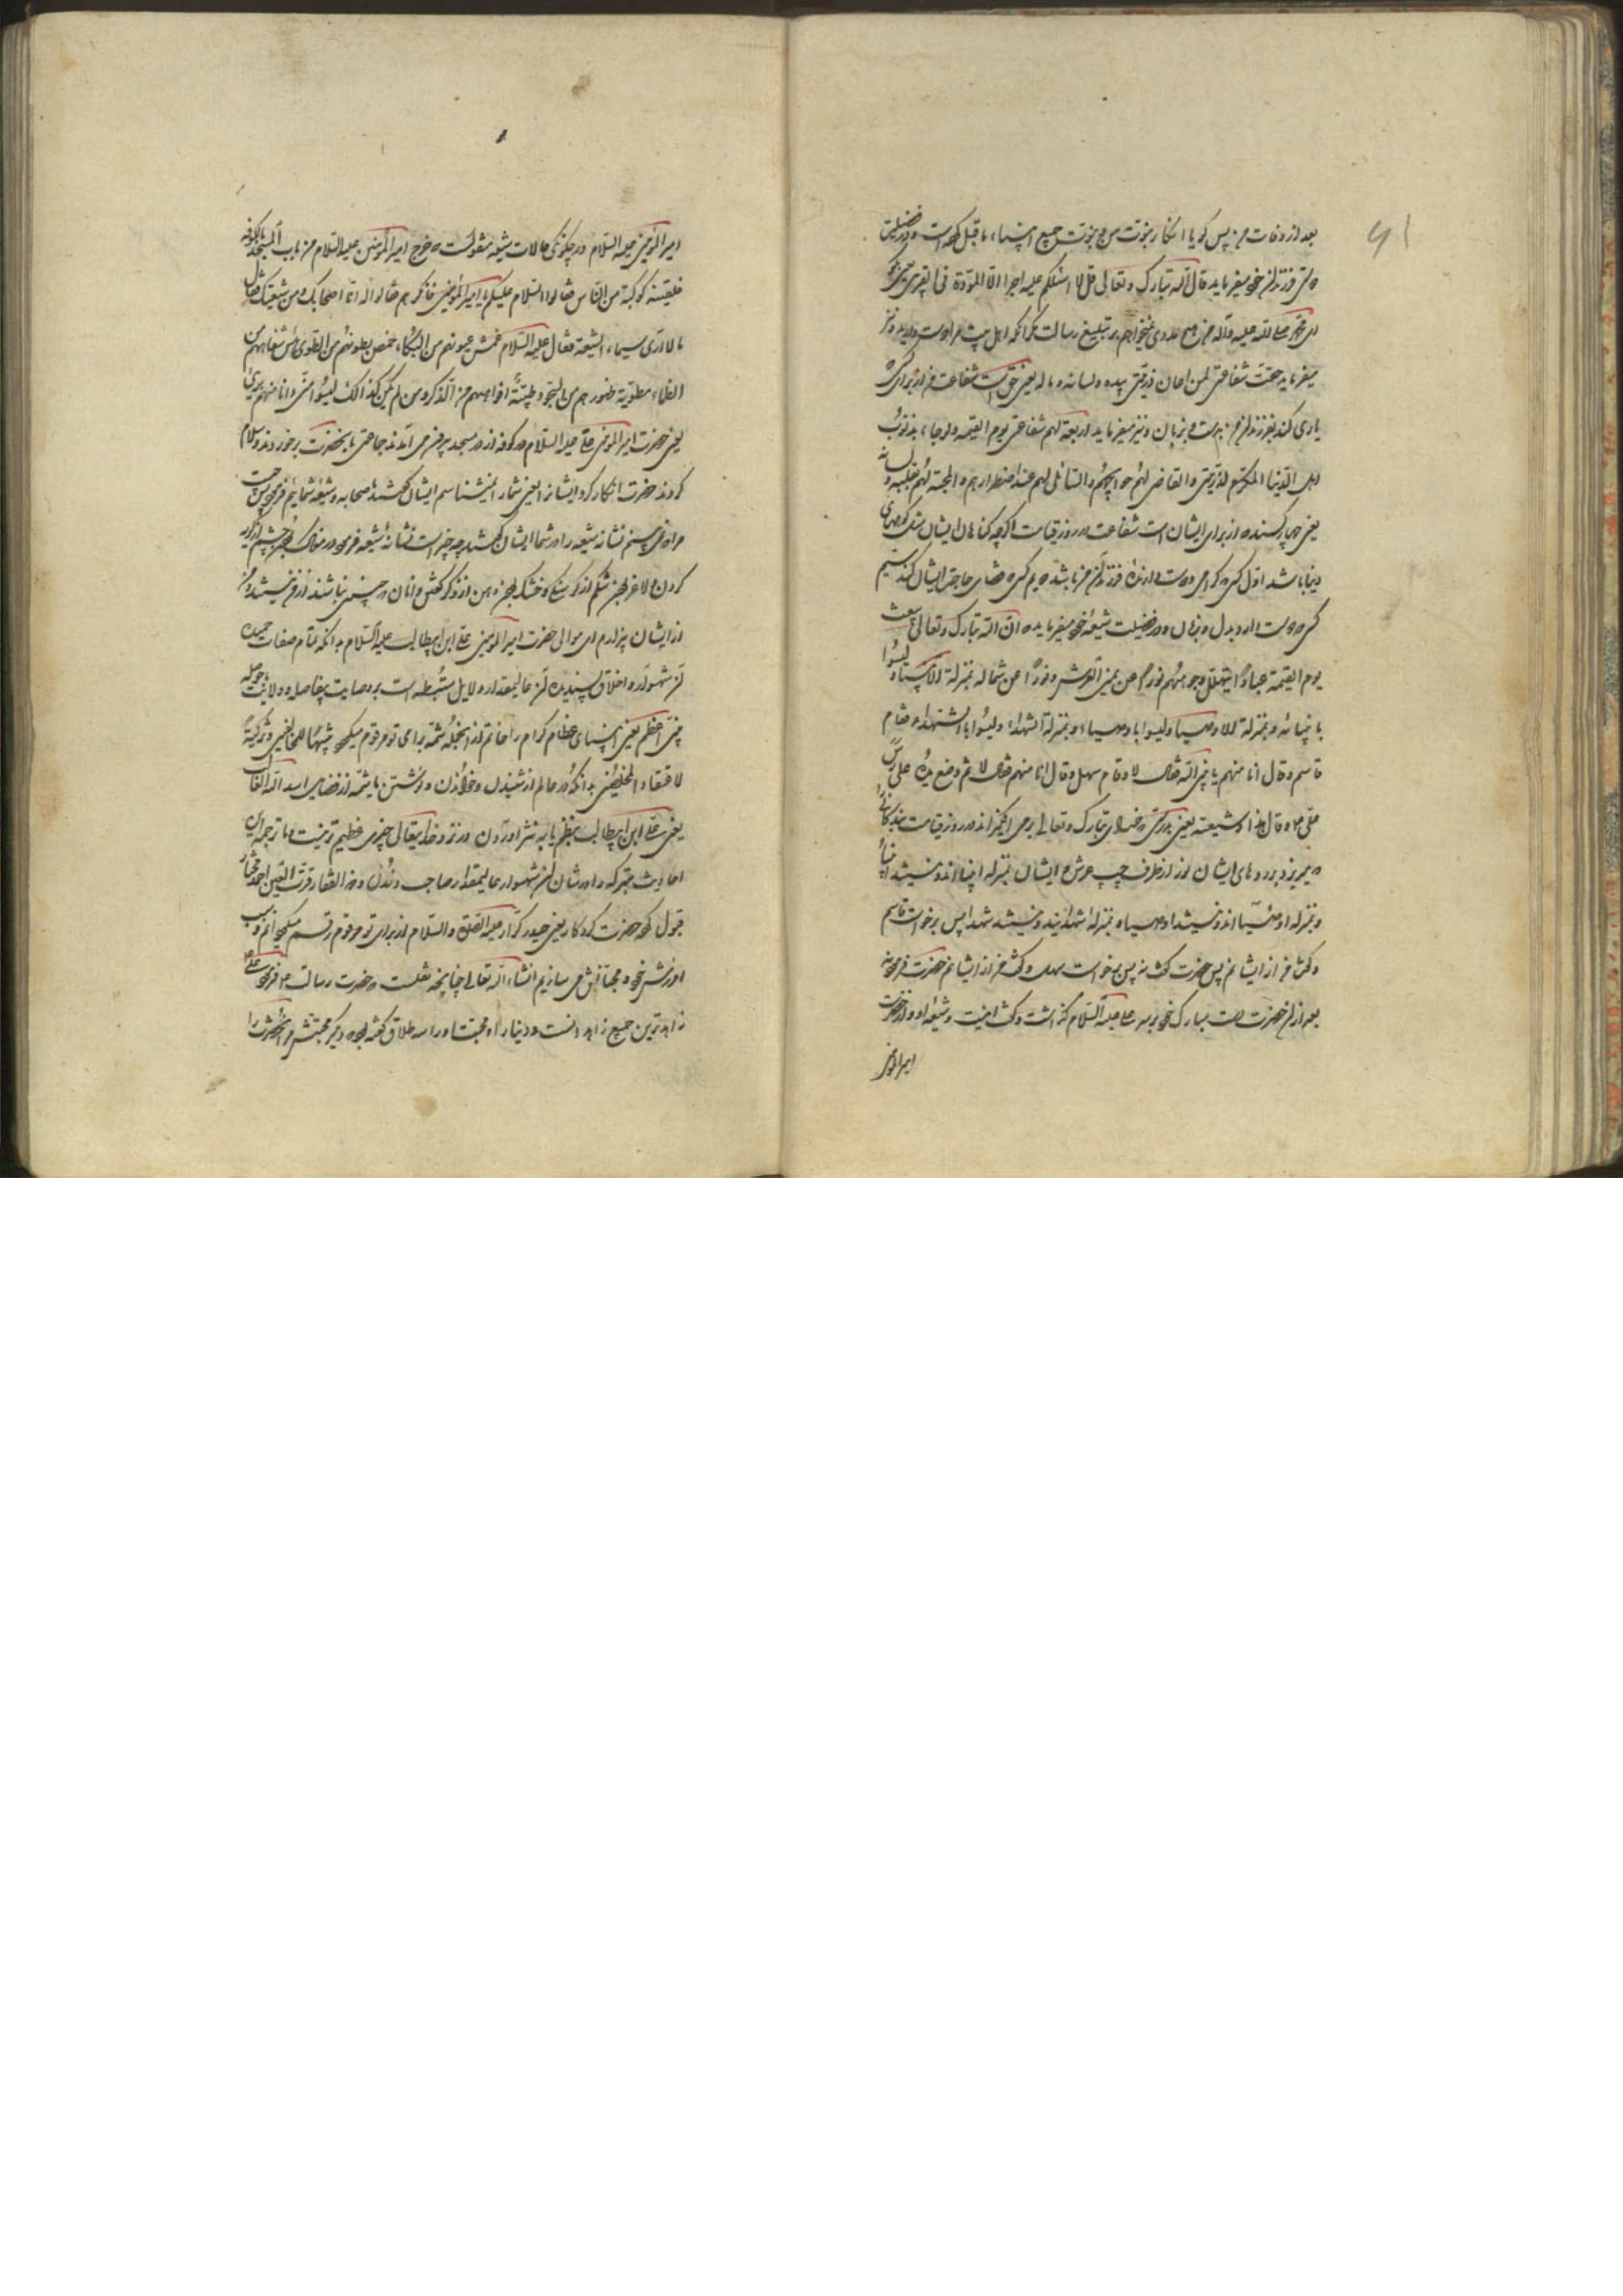 ۹۱
بعد از وفات من پس کویا انکار نبوت من و نبوت جمیع انبیاء ما قبل کرده است و در فضیلت
فرزندان خود میفرماید قال الله تبارک و تعالی قل لا اسئلکم علیه اجرا الا المودة فی القربی یعنی بگو
ای محمد صلی الله علیه و آله من هیچ مزدی نمیخواهم بر تبلیغ رسالت مگر آنکه اهل بیت مرا دوست دارید و نیز
میفرماید حقت شفاعتی لمن اعان ذریتی بیده و لسانه و ماله یعنی حق است شفاعت من از برای کسی که
یاری کند فرزندان من بدست و زبان و نیز میفرماید اربعة لهم شفاعتی یوم القیمة و لو جاء بذنوب
اهل الدنیا المکرم لذریتی و القاضی لهم حوایجهم و الساعی لهم عند اضطرارهم و المحب لهم بقلبه و لسانه
یعنی چهار کسند که از برای ایشان است شفاعت در روز قیامت اکرچه کناهان ایشان مثل کوههای
دنیا باشد اول کسی که کرامی دارنده فرزندان من باشد دویم کسی که قضای حاجت ایشان کند سیم
کسی که دوست دارد بدل و زبان و در فضیلت شیعه خود میفرماید ان الله تبارک و تعالی یبعث
یوم القیمة عبادا یتهلل وجوههم نورا عن یمین العرش و نورا عن شماله بمنزلة الانبیاء و لیسوا
بانبیاء و بمنزلة الاوصیاء و لیسوا باوصیاء و بمنزلة الشهداء و لیسوا بالشهداء فقام
قاسم و قال انا منهم یا نبی الله فقال لا و قام سهل و قال انا منهم فقال لا ثم وضع یده علی راس
علی و قال هذا و شیعته یعنی بدرستی که خدای تبارک و تعالی بر می انگیزاند در روز قیامت بندکانی
که میریزد بر روهای ایشان نور از طرف چپ عرش و ایشان بمنزله انبیا اند و نیستند انبیا
و بمنزله اوصیا اند و نیستند اوصیا و بمنزله شهدایند و نیستند شهدا پس برخواست قاسم
و گفت من از ایشانم پس حضرت گفت نه پس برخواست سهل و گفت من از ایشانم حضرت فرمود نه
بعد از آن حضرت دست مبارک خود بر سر علی علیه السلام گذاشت و گفت اینست و شیعه او و از حضرت
امیر المومنین
امیر المومنین علیه السلام در چکونکی حالات شیعه منقولست که خرج امیر المومنین علیه السلام من باب المسجد بالکوفه
فلقیته کوکبة من الناس فقالوا السلام علیکم یا امیر المومنین فانکرهم فقالوا له انا اصحابک و من شیعتک فقال
ما لا اری سیماء الشیعة فقال علیه السلام عمش عیونهم من البکاء خمص بطونهم من الطوی یبس شفاههم من
الظماء مطویة ظهورهم من السجود طیبة افواههم من الذکر و من لم یکن کذالک لیسوا منی و انا منهم بریء
یعنی حضرت امیر المومنین علی علیه السلام در کوفه از در مسجد بیرون می آمدند جماعتی بآنحضرت برخوردند و سلام
کردند حضرت انکار کرد ایشانرا یعنی شما را نمیشناسم ایشان گفتند ما صحابه و شیعه شمائیم فرمود پس چیست
مرا که نمی بینم نشانه شیعه را در شما ایشان گفتند چه چیز است نشانه شیعه فرمود در مغاک بودن چشم از گریه
کردن و لاغر بودن شکم از گرسنگی و خشک بودن دهن از ذکر گفتن و آنان که چنین نباشند از من نیستند و من
از ایشان بیزارم ای موالی حضرت امیر المومنین علی ابن ابیطالب علیه السلام بدانکه تمام صفات حمیده
آن شهسوار و اخلاق پسندیده آن عالیمقدار و دلایل مستنبطه است بر وصایت بفاصله و ولایت با حوصله
نبی اعظم یعنی انبیای عظام کرام را خاتم از آنجمله شمه برای تو مرقوم میگردد تنبیها للمخالفین و تزکیة
لاعتقاد المخلصین بدانکه در عالم از شنیدن و خواندن و نوشتن یا شمه از فضایل اسد الله الغالب
یعنی علی ابن ابیطالب بنظم یا به نثر در آوردن در نزد خدایتعالی چیزی عظیم تر نیست با ترجمه این
احادیث متبرکه که در شان آن شهسوار عالیمقدار صاحب دلدل و ذو الفقار قرة العین احمد مختار
قبول کرده حضرت کردکار یعنی حیدر کرار علیه الصلوة و السلام از برای تو مرقوم رقم میگردانم و سبب
آمرزش خود و محبانش می سازیم انشاء الله تعالی چنانچه نقلست که حضرت رسالت ص فرمود علی
زاهدترین جمیع زاهدانست و دنیا را و محبت او را سه طلاق گفته بود دیگر محبتش در آنحضرت را